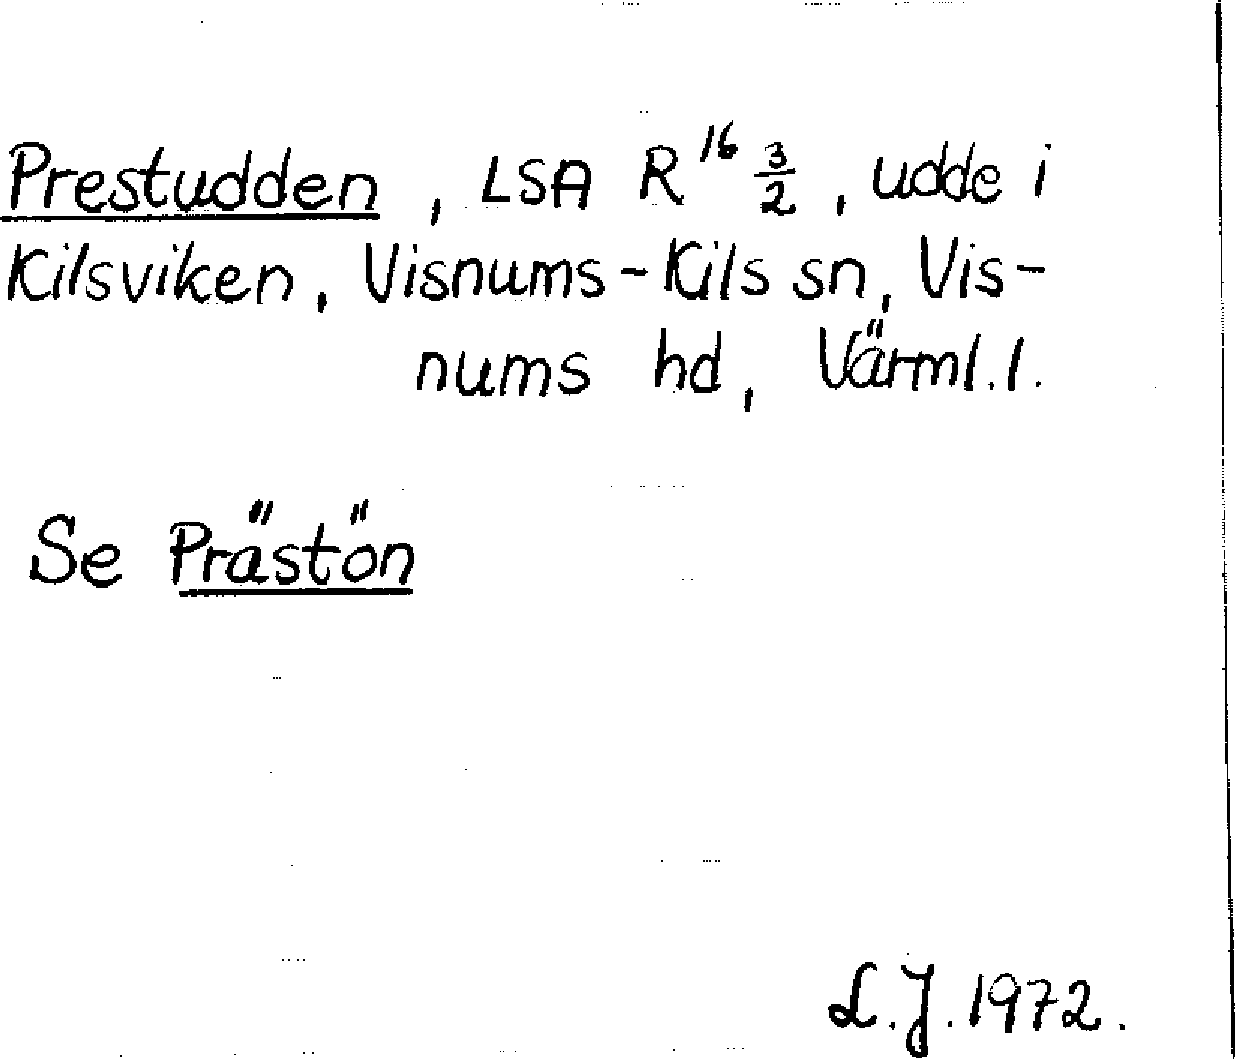 Prestudden, LSA R¹⁶ 3/2, udde i
Kilsviken, Visnums-Kils sn, Vis-
nums hd, Värml.l.
Se Prästön
L.J. 1972.